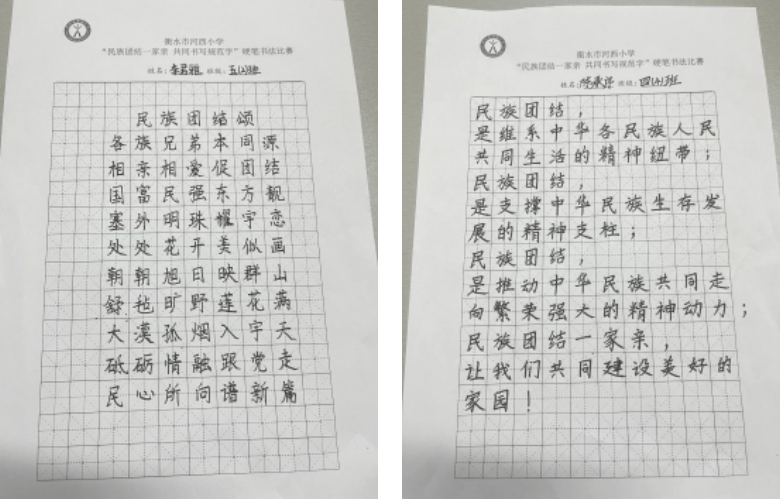 衡水市河西小学
“民族团结一家亲 共同书写规范字”硬笔书法比赛
姓名：李君雅 班级：五(2)班
民族团结颂
各族兄弟本同源
相亲相爱促团结
国富民强东方靓
塞外明珠耀宇恋
处处花开美似画
朝朝旭日映群山
舒毡旷野莲花满
大漠孤烟入宇天
砥砺情融跟党走
民心所向谱新篇
衡水市河西小学
“民族团结一家亲 共同书写规范字”硬笔书法比赛
姓名： 班级：四(4)班
民族团结，
是维系中华各民族人民
共同生活的精神纽带；
民族团结，
是支撑中华民族生存发
展的精神支柱；
民族团结，
是推动中华民族共同走
向繁荣强大的精神动力；
民族团结一家亲，
让我们共同建设美好的
家园！